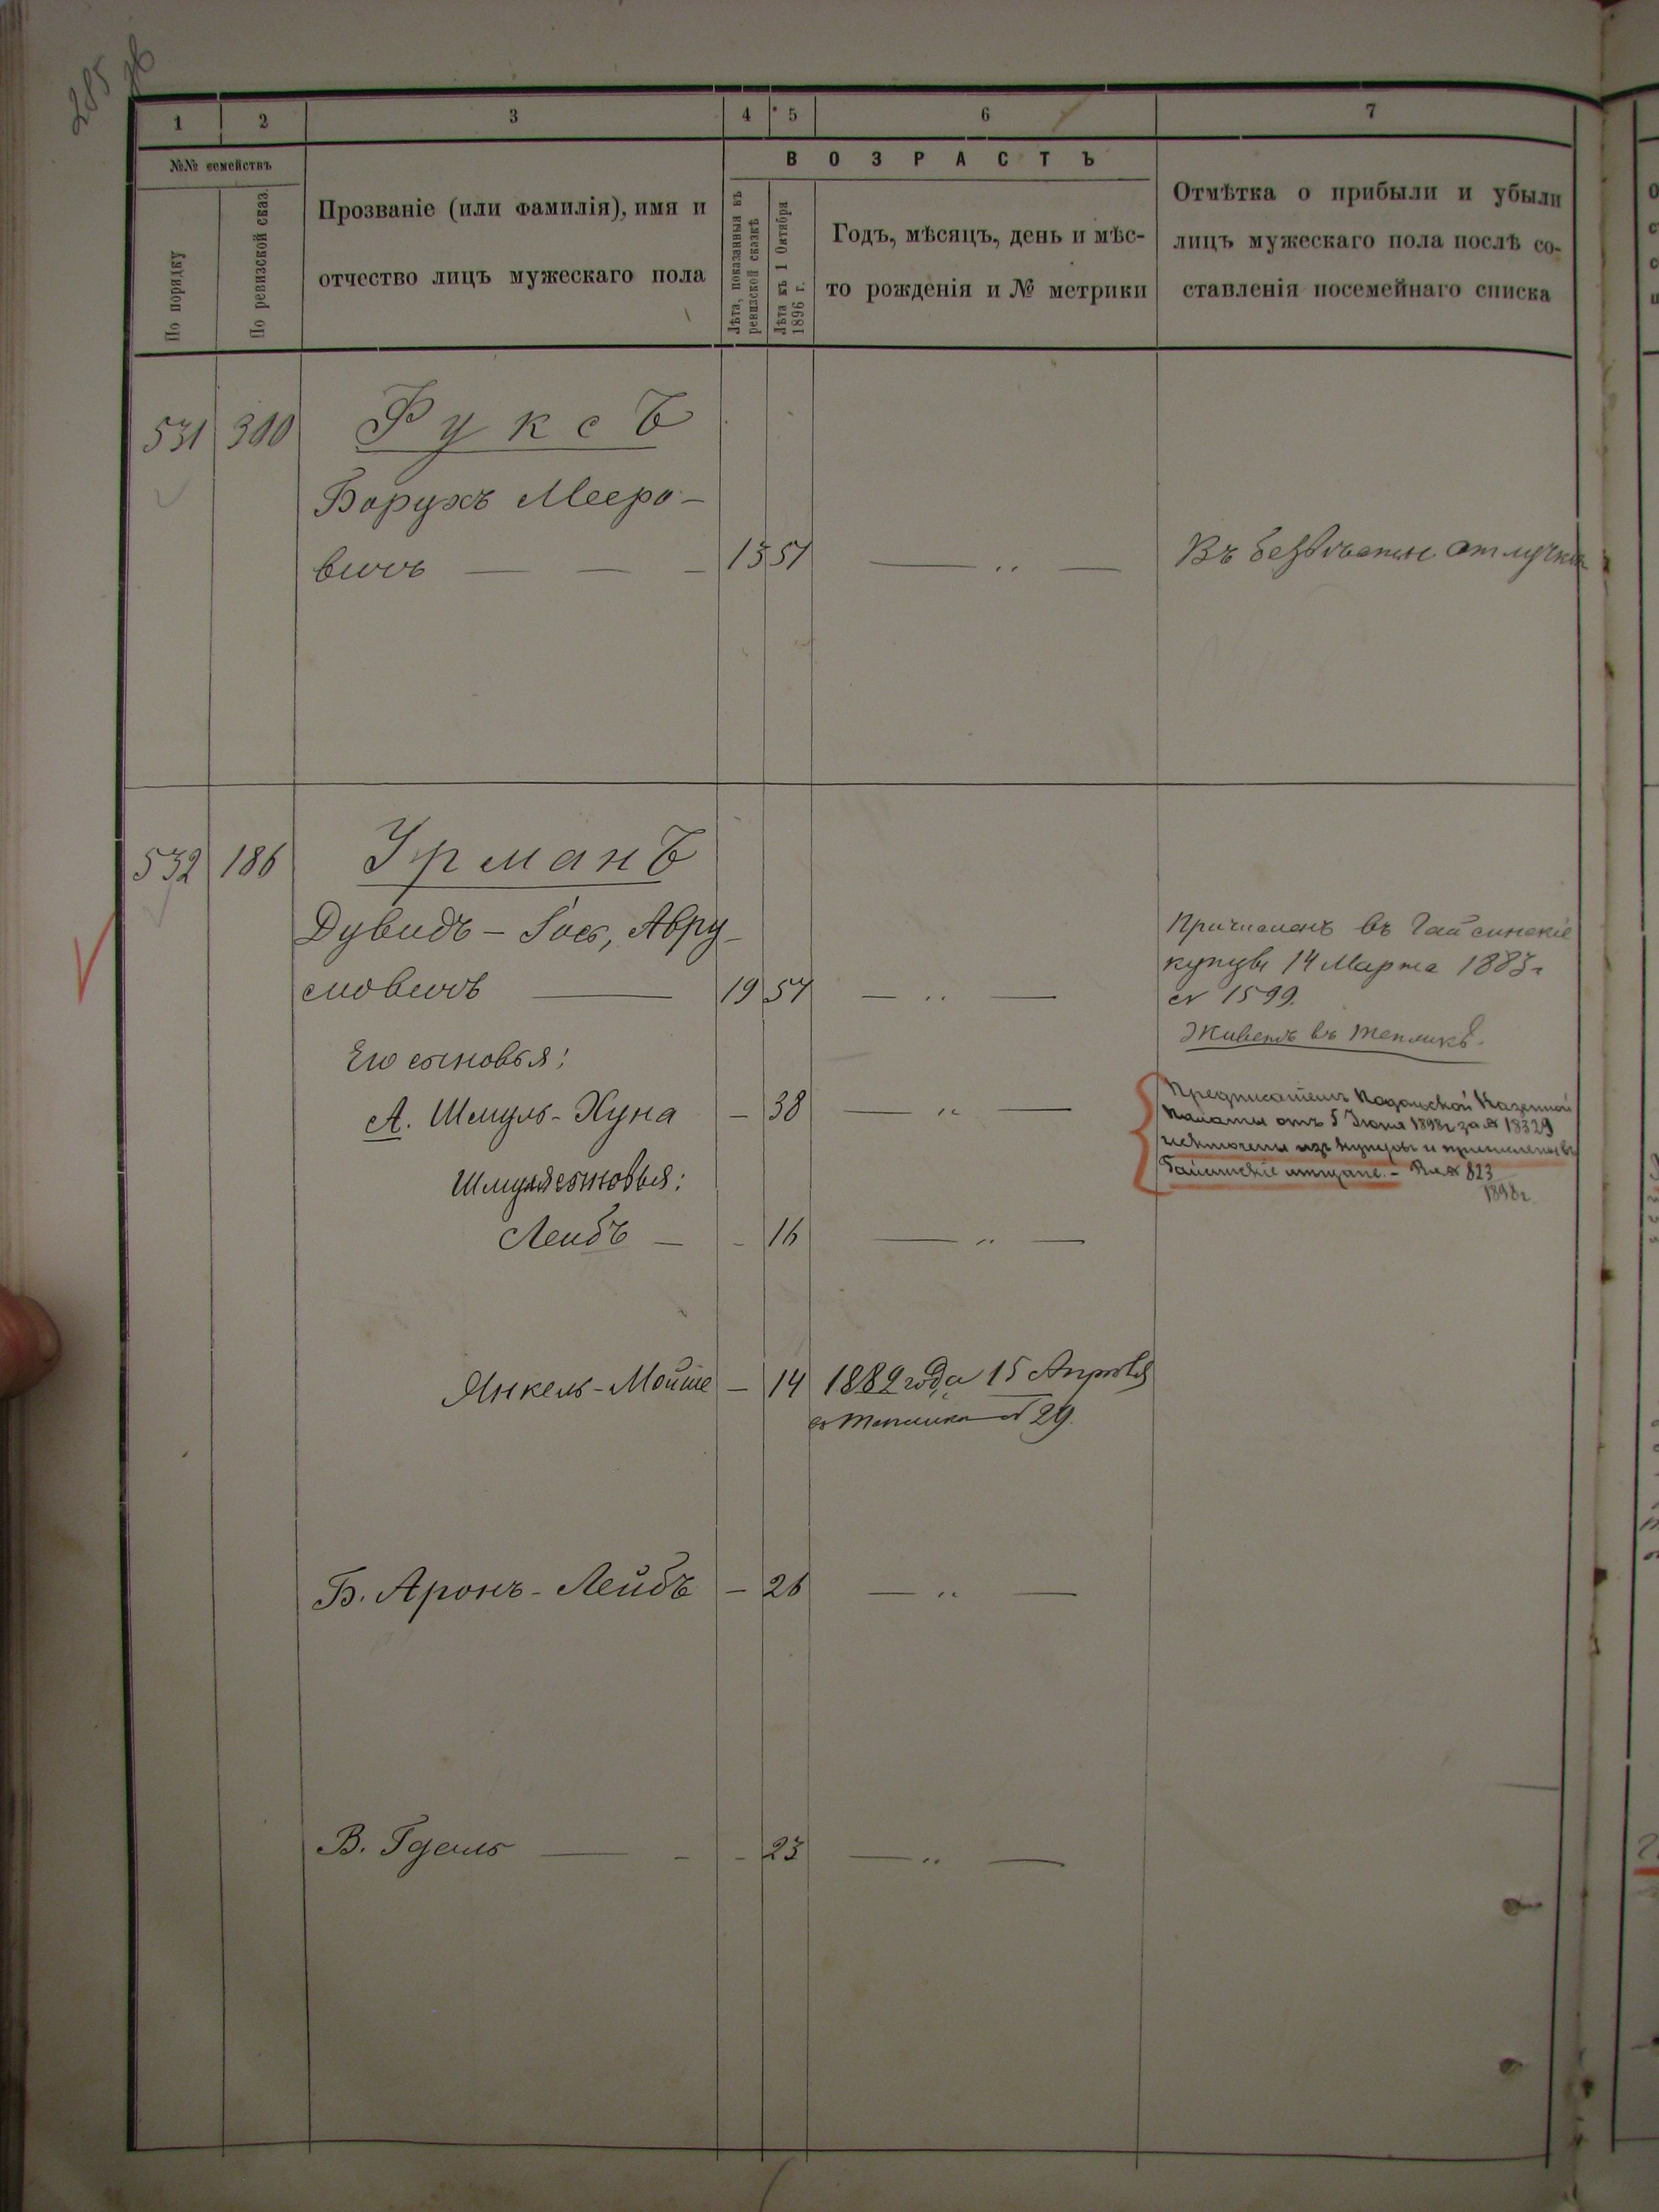 285 зв
1 2 3 4 5 6 7
№№ семействъ
По порядку
По ревизской сказ.
Прозваніе (или фамилія), имя и
отчество лицъ мужескаго пола
ВОЗРАСТЪ
Лѣта, показанныя въ
ревизской сказкѣ
Лѣта къ 1 Октября
1896 г.
Годъ, мѣсяцъ, день и мѣс-
то рожденія и № метрики
Отмѣтка о прибыли и убыли
лицъ мужескаго пола послѣ со-
ставленія посемейнаго списка
531 300 Фуксъ
Борухъ Мееро-
вичъ — — — 13 51 — „ — Въ безвѣстной отлучкѣ
532 186 Урманъ
Дувидъ-Іось, Авру-
мовичъ — 19 57 — „ —
Причисленъ въ Гайсинскіе
купцы 14 Марта 1883 г
№ 1599.
Живетъ въ Тепликѣ.
Его сыновья:
А. Шмуль-Хуна — 38 — „ —
Предписаніемъ Подольской Казенной
Палаты отъ 5 Іюня 1898 г за № 18329
исключены изъ купцовъ и причислены въ
Гайсинскіе мѣщане. - № 823
1898 г
Шмуля сыновья:
Лейбъ — - 16 — „ —
Янкель-Мойше — 14 1882 года 15 Апрѣля
въ Тепликѣ № 29.
Б. Аронъ-Лейбъ — 26 — „ —
В. Гдаль — - - 23 — „ —